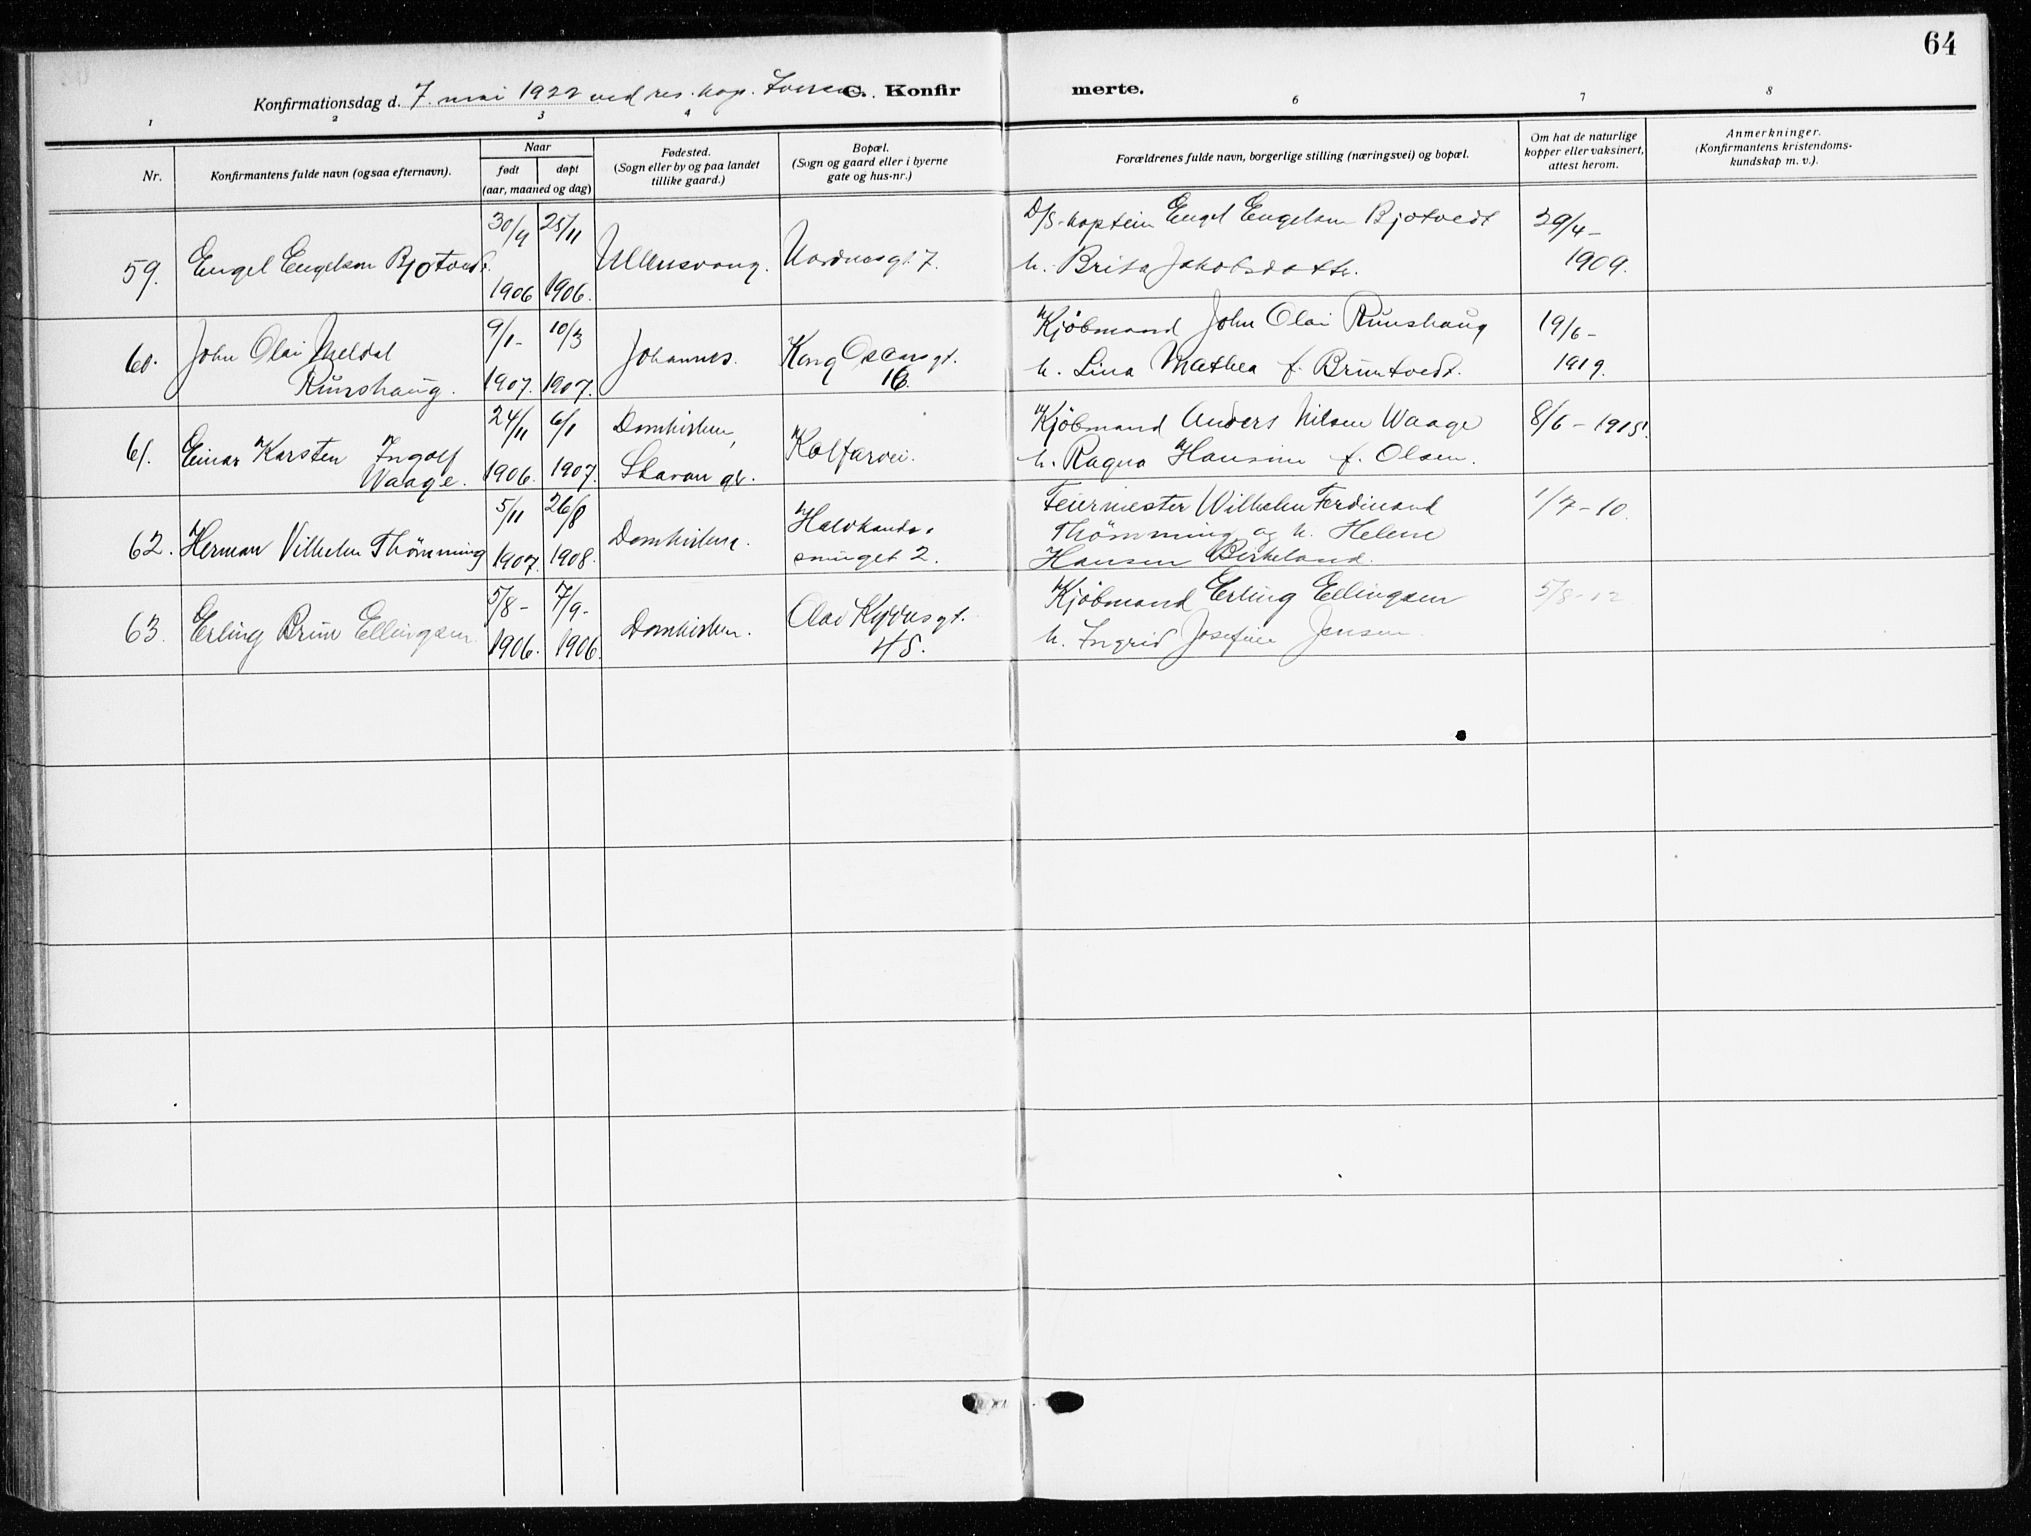 64
Konfirmationsdag d. 7. mai 1922 ved res. kap. C. Konfirmerte.
1 2 3 4 6 7 8
Nr.
Konfirmantens fulde navn (ogsaa efternavn).
Naar
født døpt
(aar, maaned og dag)
Fødested.
(Sogn eller by og paa landet
tillike gaard.)
Bopæl.
(Sogn og gaard eller i byerne
gate og hus-nr.)
Forældrenes fulde navn, borgerlige stilling (næringsvei) og bopæl.
Om hat de naturlige
kopper eller vaksinert,
attest herom.
Anmerkninger.
(Konfirmantens kristendoms-
kundskap m. v.).
30/11 25/11 D/S-kaptein Engel Engelsen Bjotvedt 29/4-
59. Engel Engelsen Bjotvedt. Ullensvang. Nordnesgt 7.
1906 1906. h. Brita Jakobsdatter. 1909.
9/1- 10/3 Kjøbmand John Olai Runshaug 19/6-
60. John Olai Meldal Johannes. Kong Oscarsgt.
Runshaug. 1907. 1907. 16. h. Lina Mathea f. Bruntvedt. 1919.
24/11 6/1 Domkirken, Kjøbmand Anders Nilsen Waage 8/6-1915.
61. Einar Karsten Ingolf Kalfarvei.
Waage. 1906. 1907. Stavangr. h. Ragna Hansine f. Olsen.
5/11 26/8 Halvkands- Feiermester Wilhelm Ferdinand 1/7-10.
62. Herman Vilhelm Thømming Domkirken. Thømming og h. Helene
1907. 1908. smuget 2. Hansen Birkeland.
5/8- 7/9- Olav Kyrresgt. Kjøbmand Erling Ellingsen 5/8-12
63. Erling Brun Ellingsen. Domkirken.
1906. 1906. 45. h. Ingrid Josefine Jensen.